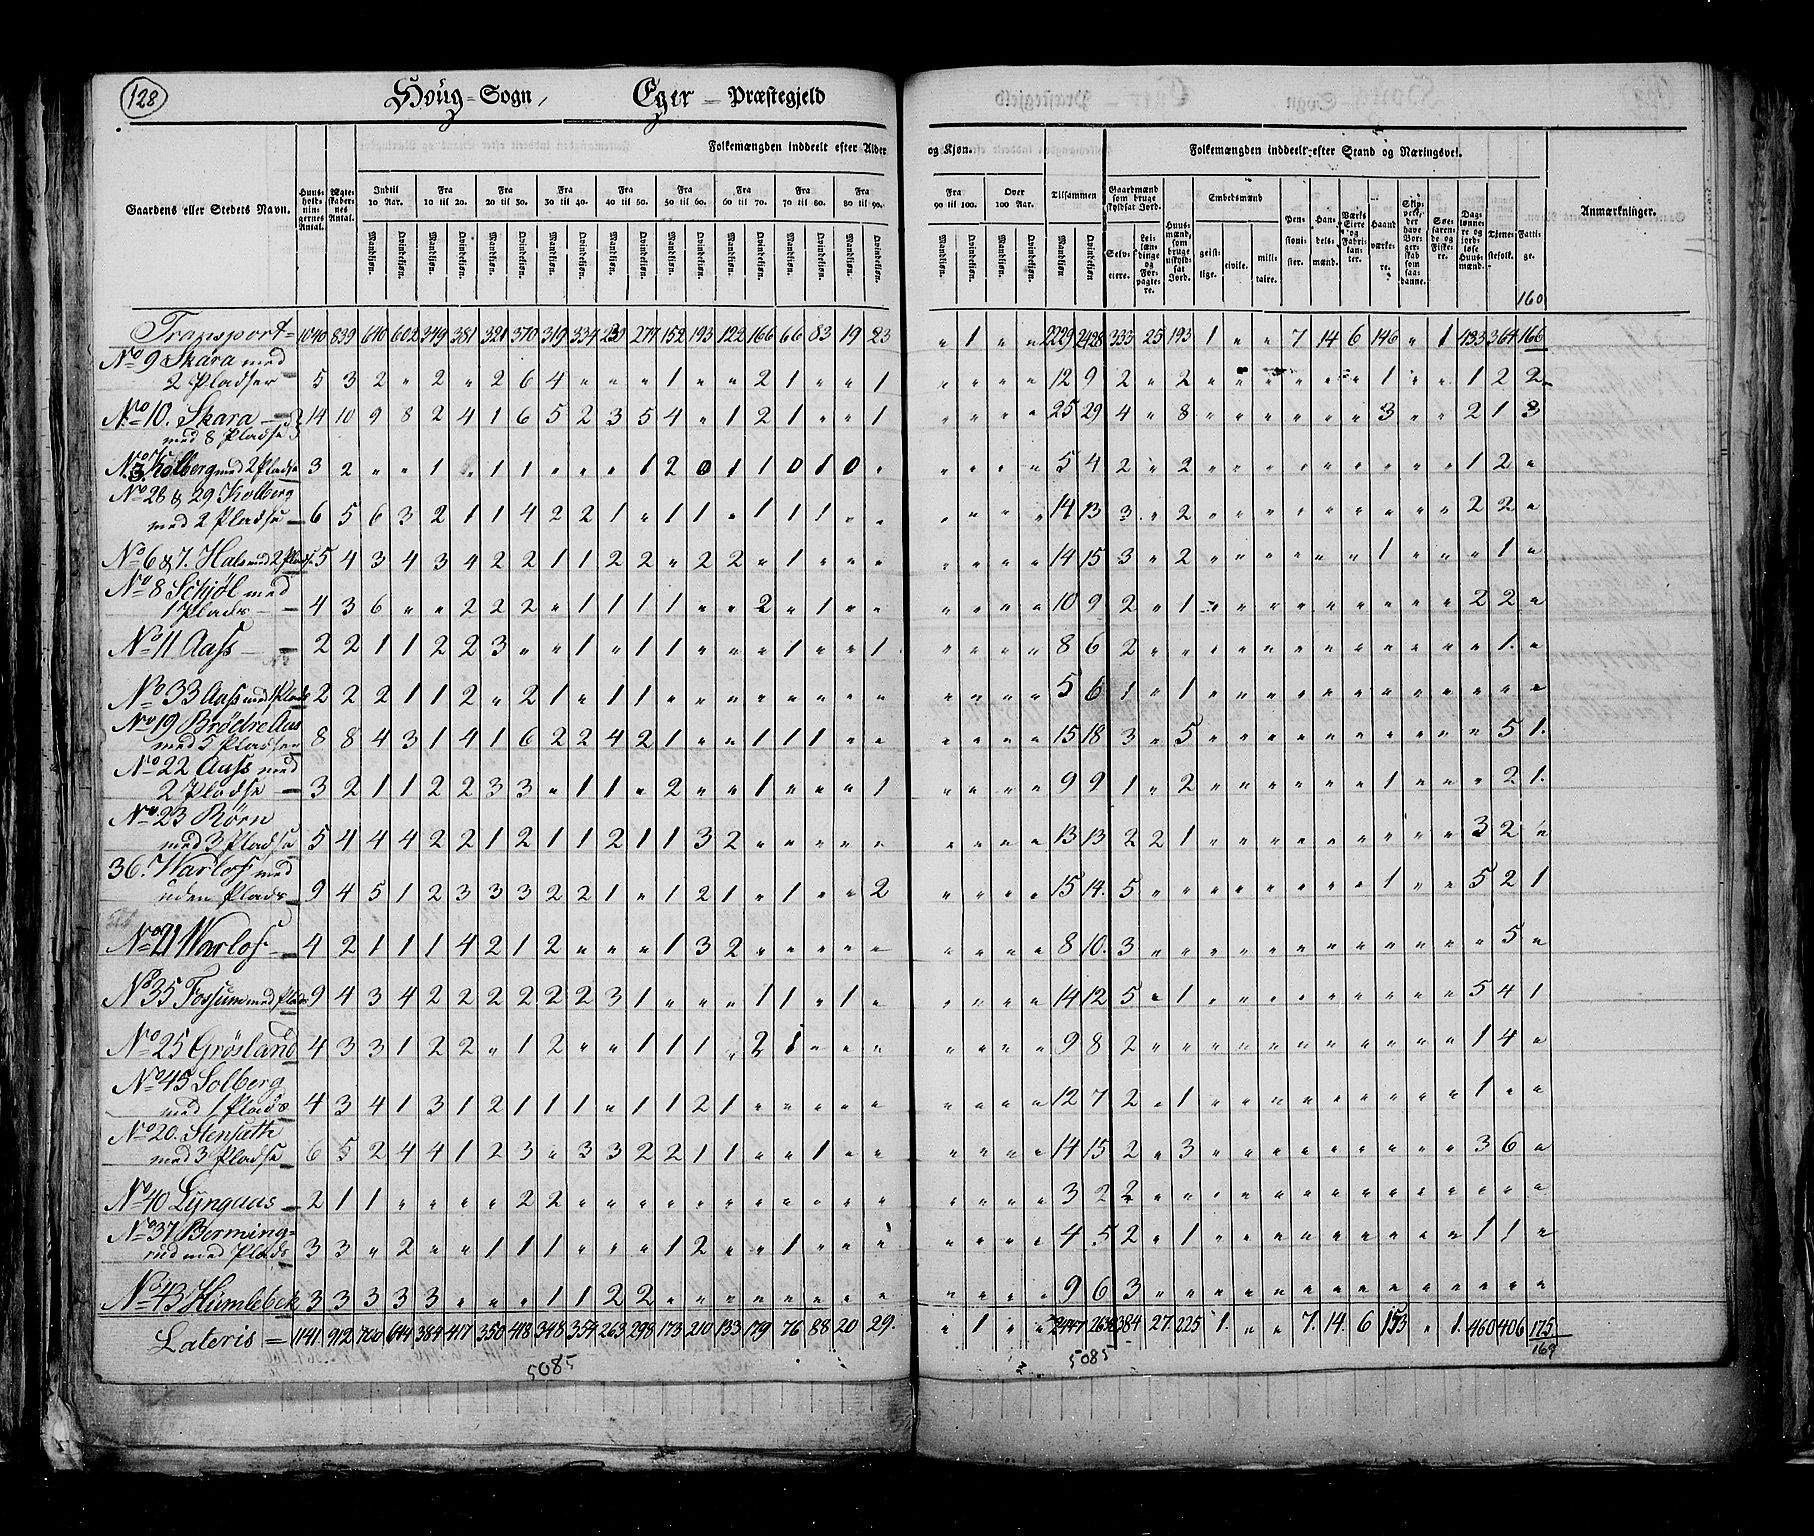 128
Houg-Sogn, Eger-Præstegjeld
Folkemængden inddeelt efter Alder og Kjøn.
Folkemængden inddeelt efter Stand og Næringsvei.
Gaardens eller Stedets Navn.
Huusholdningernes Antal.
Ægteskabernes Antal.
Indtil 10 Aar.
Fra 10 til 20.
Fra 20 til 30.
Fra 30 til 40.
Fra 40 til 50.
Fra 50 til 60.
Fra 60 til 70.
Fra 70 til 80.
Fra 80 til 90.
Fra 90 til 100.
Over 100 Aar.
Tilsammen
Mandkjøn. Qvindekjøn.
Gaardmænd som bruge skyldsat Jord.
Selveiere.
Leilændinge og Forpagtere.
Huusmænd, som bruge uskyldsat Jord.
Embedsmænd
geistlige. civile. militaire.
Pensionister.
Handelsmænd.
Værks Eiere og Fabrikanter.
Haandværkere.
Skippere, der have Borgerskab som saadanne.
Søefarende og Fiskere.
Daglønnere og jordløse Huusmænd.
Tjenestefolk.
Fattige.
Anmærkninger.
160
Transport 1040 839 640 602 349 381 321 370 319 334 230 277 152 193 122 166 66 83 19 23 " 1 " " 2229 2428 333 25 193 1 " " 7 14 6 146 " 1 433 364 166
No 9 Skara med
2 Pladser 5 3 2 " 2 " 2 6 4 " " " 1 " " 2 1 " " 1 " " " " 12 9 2 " 2 " " " " " " 1 " " 1 2 2
No 10. Skara
med 8 Pladse 14 10 9 8 2 4 1 6 5 2 3 5 4 " 1 2 1 " " 1 " " " " 25 29 4 " 8 " " " " " " 3 " " 2 1 3
Kolberg med 2 Pladse 3 2 " " 1 " 1 1 " " " 1 2 0 1 1 0 1 0 " " " " " 5 4 2 " 2 " " " " " " " " " 1 2 "
No 28 & 29 Kolberg
med 2 Pladse 6 5 6 3 2 1 1 4 2 2 1 " 1 1 " 1 1 1 " " " " " " 14 13 3 " 2 " " " " " " " " " 2 2 "
No 6 & 7. Hals med 2 Pladse 5 4 3 4 3 4 2 2 1 1 2 2 " 2 2 " 1 " " " " " " " 14 15 3 " 2 " " " " " " 1 " " " 1 "
No 8 Schjøl med
1 Plads 4 3 6 " " 2 2 2 " 1 1 1 1 " " 2 " 1 " " " " " " 10 9 2 " 1 " " " " " " " " " 2 2 "
No 11 Aass 2 2 1 1 2 2 3 " " 1 " 1 1 " " " 1 " " 1 " " " " 8 6 2 " " " " " " " " " " " " 1 "
No 33 Aass med 1 Plads 2 2 2 1 1 2 " 2 1 " 1 1 " " " " " " " " " " " " 5 6 1 " 1 " " " " " " " " " " " "
No 19 Brödre Aas
med 5 Pladser 8 8 4 3 1 4 1 6 2 2 4 2 1 " " 1 1 1 " " " " " " 15 18 3 " 5 " " " " " " " " " " 5 1
No 22 Aass med
2 Pladse 3 2 1 1 2 2 3 3 " 1 1 " 2 " " 1 " " " 1 " " " " 9 9 1 " 2 " " " " " " 1 " " " 2 1
No 23 Rörn
med 3 Pladse 5 4 4 4 2 2 1 2 1 1 2 1 1 3 2 " " " " " " " " " 13 13 2 2 1 " " " " " " " " " 3 2 "
36. Warlos med
uden Plads 9 4 5 1 2 3 3 3 2 2 1 " 1 2 1 " 1 " " 2 " " " " 15 14 5 " " " " " " " " 1 " " 5 2 1
No 21 Warlos 4 2 1 1 1 4 2 1 2 " " " 1 3 2 " " " " " " " " " 8 10 3 " " " " " " " " " " " " 5 "
No 35 Fossum med Plads 9 4 3 4 2 2 2 2 2 2 3 1 " " " 1 1 " 1 " " " " " 14 12 5 " 1 " " " " " " " " " 5 4 1
No 25 Grösland 4 3 3 1 2 2 " 1 2 " " 1 1 1 " 2 1 " " " " " " " 9 8 2 " " " " " " " " " " " 1 4 "
No 45 Solberg
med 1 Plads 4 3 4 1 3 1 2 1 1 1 " 1 1 2 1 " " " " " " " " " 12 7 2 " 1 " " " " " " " " " 1 " "
No 20. Stensæth
med 3 Pladse 6 5 2 4 4 1 2 3 " 3 3 2 2 1 1 " " 1 " " " " " " 14 15 2 " 3 " " " " " " " " " 3 6 "
No 40 Lyngaas 2 1 1 " " " " 2 2 " " " " " " " " " " " " " " " 3 2 2 " " " " " " " " " " " " " "
No 37 Borming-
rud med Plads 3 3 " 2 " " 1 1 1 " " " 1 2 " " 1 " " " " " " " 4 5 2 " 1 " " " " " " " " " 1 1 "
No 43 Humlebek 3 3 3 3 3 " " " 1 1 2 2 " " " " " " " " " " " " 9 6 3 " " " " " " " " " " " " " "
Lateris 1141 912 700 644 384 417 350 418 348 354 263 298 173 210 133 179 76 88 20 29. " 1 " " 2447 2638 384 27 225 1 " " 7 14 6 153 " 1 460 406 175
169
5085
5085